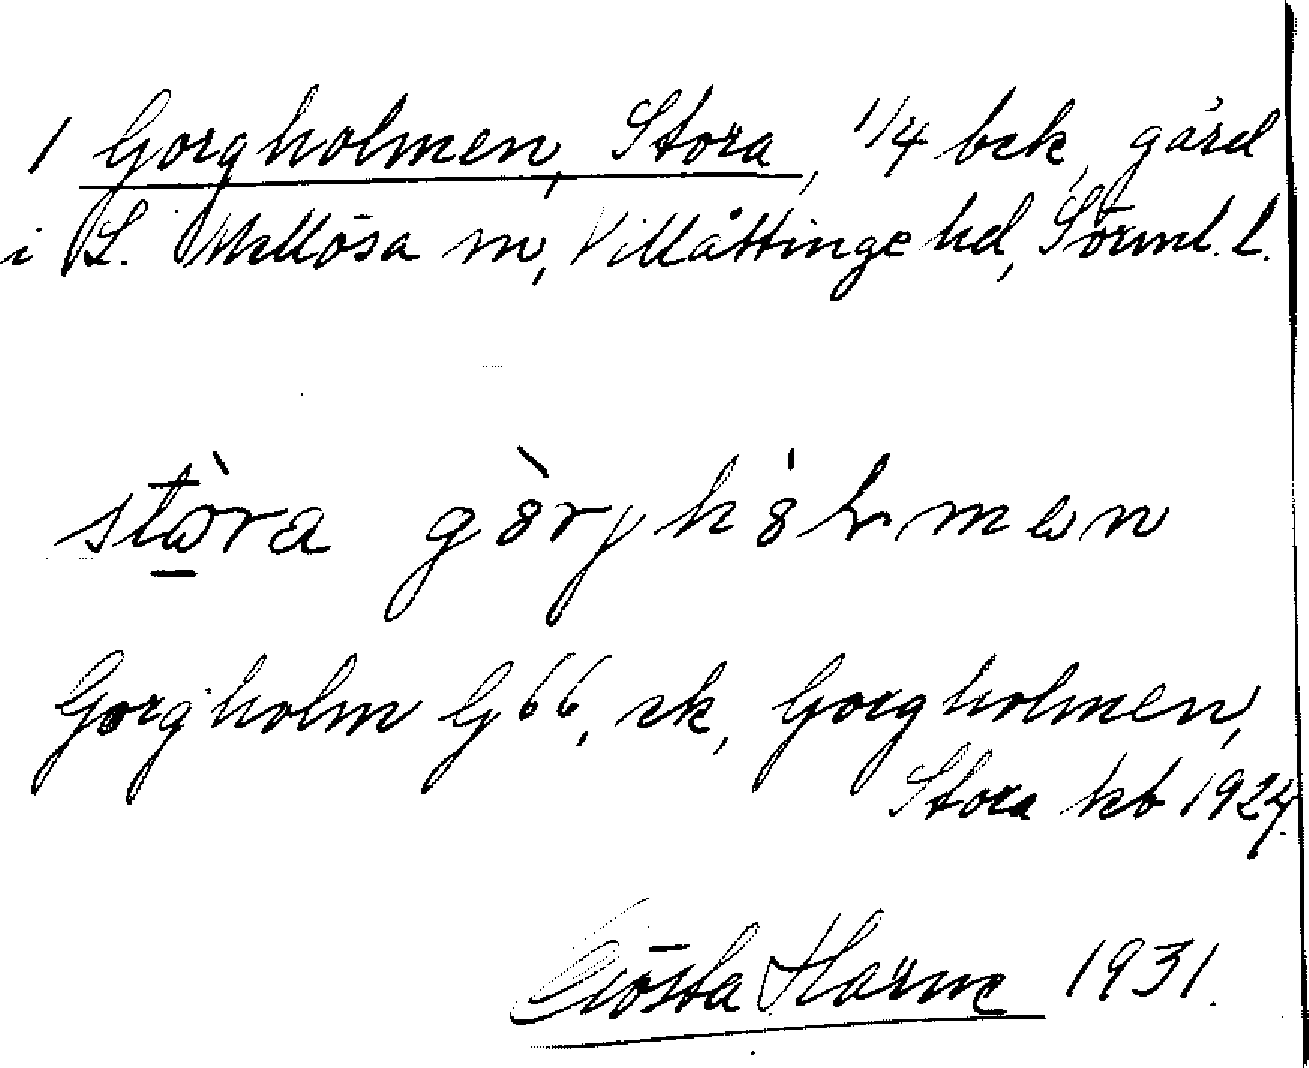 1 Gorgholmen, Stora, 1/4 bek, gård
i L. Mellösa sn, Villåttinge hd, Sörml. l.
stòra gòrjhólmen
Gorgholm G 66, sk, Gorgholmen,
Stora kb 1924.
Gösta Harne 1931.